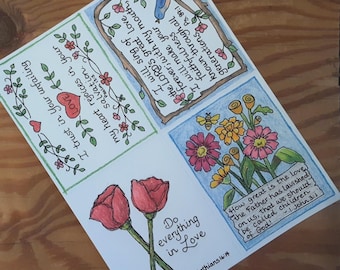 I will sing of
the LORD's great love
forever; with my mouth
I will make your
faithfulness
known through all
generations.
I trust in Your unfailing
Love
my heart
rejoices in Your
salvation
How great is the love
the Father has lavished
on us, that we should
be called children
of God!
1 John 3:1
Do
everything
in Love